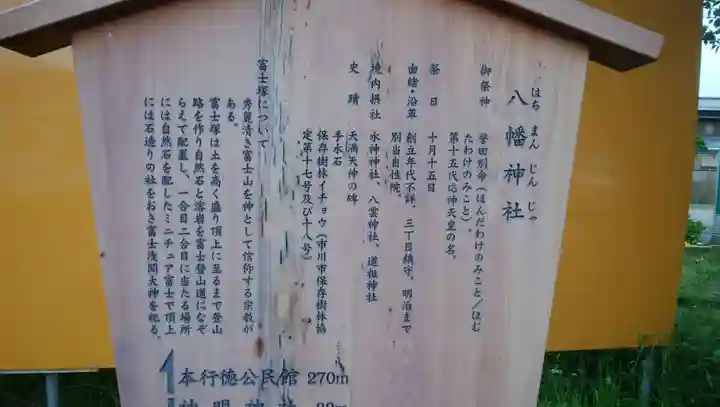 はちまんじんじゃ
八幡神社
御祭神　誉田別命（ほんだわけのみこと／ほむ
たわけのみこと）。
第十五代応神天皇の名。
祭日　十月十五日
由緒・沿革　創立年代不詳。三丁目鎮守。明治まで
別当自性院。
境内摂社　水神神社、八雲神社、道祖神社
史蹟　天満天神の碑
手水石
保存樹林イチョウ（市川市保存樹林協
定第十七号及び十八号）
富士塚について
秀麗清き富士山を神として信仰する宗教が
ある。
富士塚は土を高く盛り頂上に至るまで登山
路を作り自然石と溶岩を富士登山道になぞ
らえて配置し、一合目二合目に当たる場所
には自然石を配したミニチュア富士で頂上
には石造りの社をおき富士浅間大神を祀る。
本行徳公民館 270m
神明神社